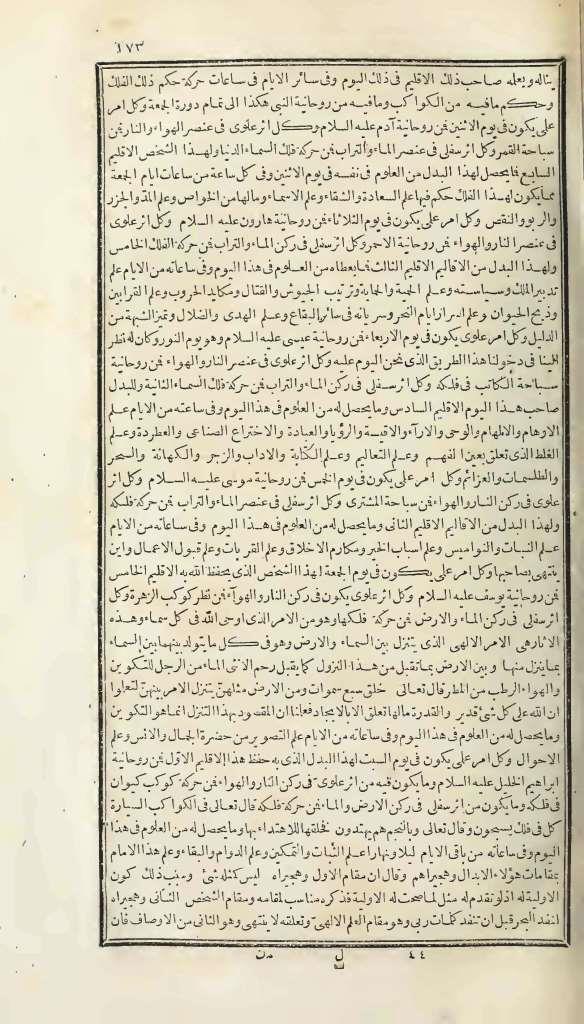 ١٧٣
يناله ويعلمه صاحب ذلك الاقليم فى ذلك اليوم وفى سائر الايام فى ساعات حركة حكم ذلك الفلك
وحكم مافيه من الكواكب ومافيه من روحانية النبي هكذا الى تمام دورة الجمعة وكل امر
علمى يكون فى يوم الاثنين فمن روحانية آدم عليه السلام وكل اثر علوى فى عنصر الهواء والنار فمن
سباحة القمر وكل اثر سفلى فى عنصر الماء والتراب فمن حركة فلك السماء الدنيا ولهذا الشخص الاقليم
السابع فما يحصل لهذا البدل من العلوم فى نفسه فى يوم الاثنين وفى كل ساعة من ساعات ايام الجمعة
مما يكون لهذا الفلك حكم فيها علم السعادة والشقاء وعلم الاسماء ومالها من الخواص وعلم المد والجزر
والربو والنقص وكل امر علمى يكون فى يوم الثلاثاء فمن روحانية هارون عليه السلام وكل اثر علوى
فى عنصر النار والهواء فمن روحانية الاحمر وكل اثر سفلى فى ركن الماء والتراب فمن حركة الفلك الخامس
ولهذا البدل من الاقاليم الاقليم الثالث فما يعطاه من العلوم فى هذا اليوم وفى ساعاته من الايام علم
تدبير الملك وسياسته وعلم الحمية والحماية وترتيب الجيوش والقتال ومكايد الحروب وعلم القرابين
وذبح الحيوان وعلم اسرار ايام النحر وسريانه فى سائر البقاع وعلم الهدى والضلال وتميز الشبهة من
الدليل وكل امر علوى يكون فى يوم الاربعاء فمن روحانية عيسى عليه السلام وهو يوم النور وكان له نظر
الينا فى دخولنا هذا الطريق الذى نحن اليوم عليه وكل اثر علوى فى عنصر النار والهواء فمن روحانية
سباحة الكاتب فى فلكه وكل اثر سفلى فى ركن الماء والتراب فمن حركة فلك السماء الثانية وللبدل
صاحب هذا اليوم الاقليم السادس وما يحصل له من العلوم فى هذا اليوم وفى ساعته من الايام علم
الاوهام والالهام والوحى والآراء والاقيسة والرؤيا والعبادة والاختراع الصناعى والعطردة وعلم
الغلط الذى تعلق بعين الفهم وعلم التعاليم وعلم الكتابة والاداب والزجر والكهانة والسحر
والطلسمات والعزائم وكل امر علمى يكون فى يوم الخمس فمن روحانية موسى عليه السلام وكل اثر
علوى فى ركن النار والهواء فمن سباحة المشترى وكل اثر سفلى فى عنصر الماء والتراب فمن حركة فلكه
ولهذا البدل من الاقاليم الاقليم الثانى وما يحصل له من العلوم فى هذا اليوم وفى ساعاته من الايام
علم النبات والنواميس وعلم اسباب الخير ومكارم الاخلاق وعلم القربات وعلم قبول الاعمال واين
ينتهى بصاحبها وكل امر علمى يكون فى يوم الجمعة لهذا الشخص الذى يحفظ الله به الاقليم الخامس
فمن روحانية يوسف عليه السلام وكل اثر علوى يكون فى ركن النار والهواء فمن نظر كوكب الزهرة وكل
اثر سفلى فى ركن الماء والارض فمن حركة فلكها وهو من الامر الذى اوحى الله فى كل سماء وهذه
الاثار هى الامر الالهى الذى يتنزل بين السماء والارض وهو فى كل ما يتولد بينهما بين السماء
بما ينزل منها وبين الارض بما تقبل من هذا النزول كما يقبل رحم الانثى الماء من الرجل للتكوين
والهواء الرطب من المطر قال تعالى خلق سبع سموات ومن الارض مثلهن يتنزل الامر بينهن لتعلموا
ان الله على كل شئ قدير والقدرة مالها تعلق الا بالايجاد فعلمنا ان المقصود بهذا التنزل انما هو التكوين
وما يحصل له من العلوم فى هذا اليوم وفى ساعاته من الايام علم التصوير من حضرة الجمال والانس وعلم
الاحوال وكل امر علمى يكون فى يوم السبت لهذا البدل الذى به حفظ هذا الاقليم الاول فمن روحانية
ابراهيم الخليل عليه السلام وما يكون فيه من اثر علوى فى ركن النار والهواء فمن حركة كوكب كيوان
فى فلكه وما يكون من اثر سفلى فى ركن الارض والماء فمن حركة فلكه قال تعالى فى الكواكب السيارة
كل فى فلك يسبحون وقال تعالى وبالنجم هم يهتدون فخلقها للاهتداء بها وما يحصل له من العلوم فى هذا
اليوم وفى ساعاته من باقى الايام ليلا ونهارا علم الثبات والتمكين وعلم الدوام والبقاء وعلم هذا الامام
بمقامات هؤلاء الابدال وهجيراهم وقال ان مقام الاول وهجيراه ليس كمثله شئ وسبب ذلك كون
الاولية له اذ لو تقدم له مثل لما صحت له الاولية فذكره مناسب لمقامه ومقام الشخص الثانى وهجيراه
لنفد البحر قبل ان تنفد كلمات ربى وهو مقام العلم الالهى وتعلقه لا ينتهى وهو الثانى من الاوصاف فان
٤٤ ل مـن